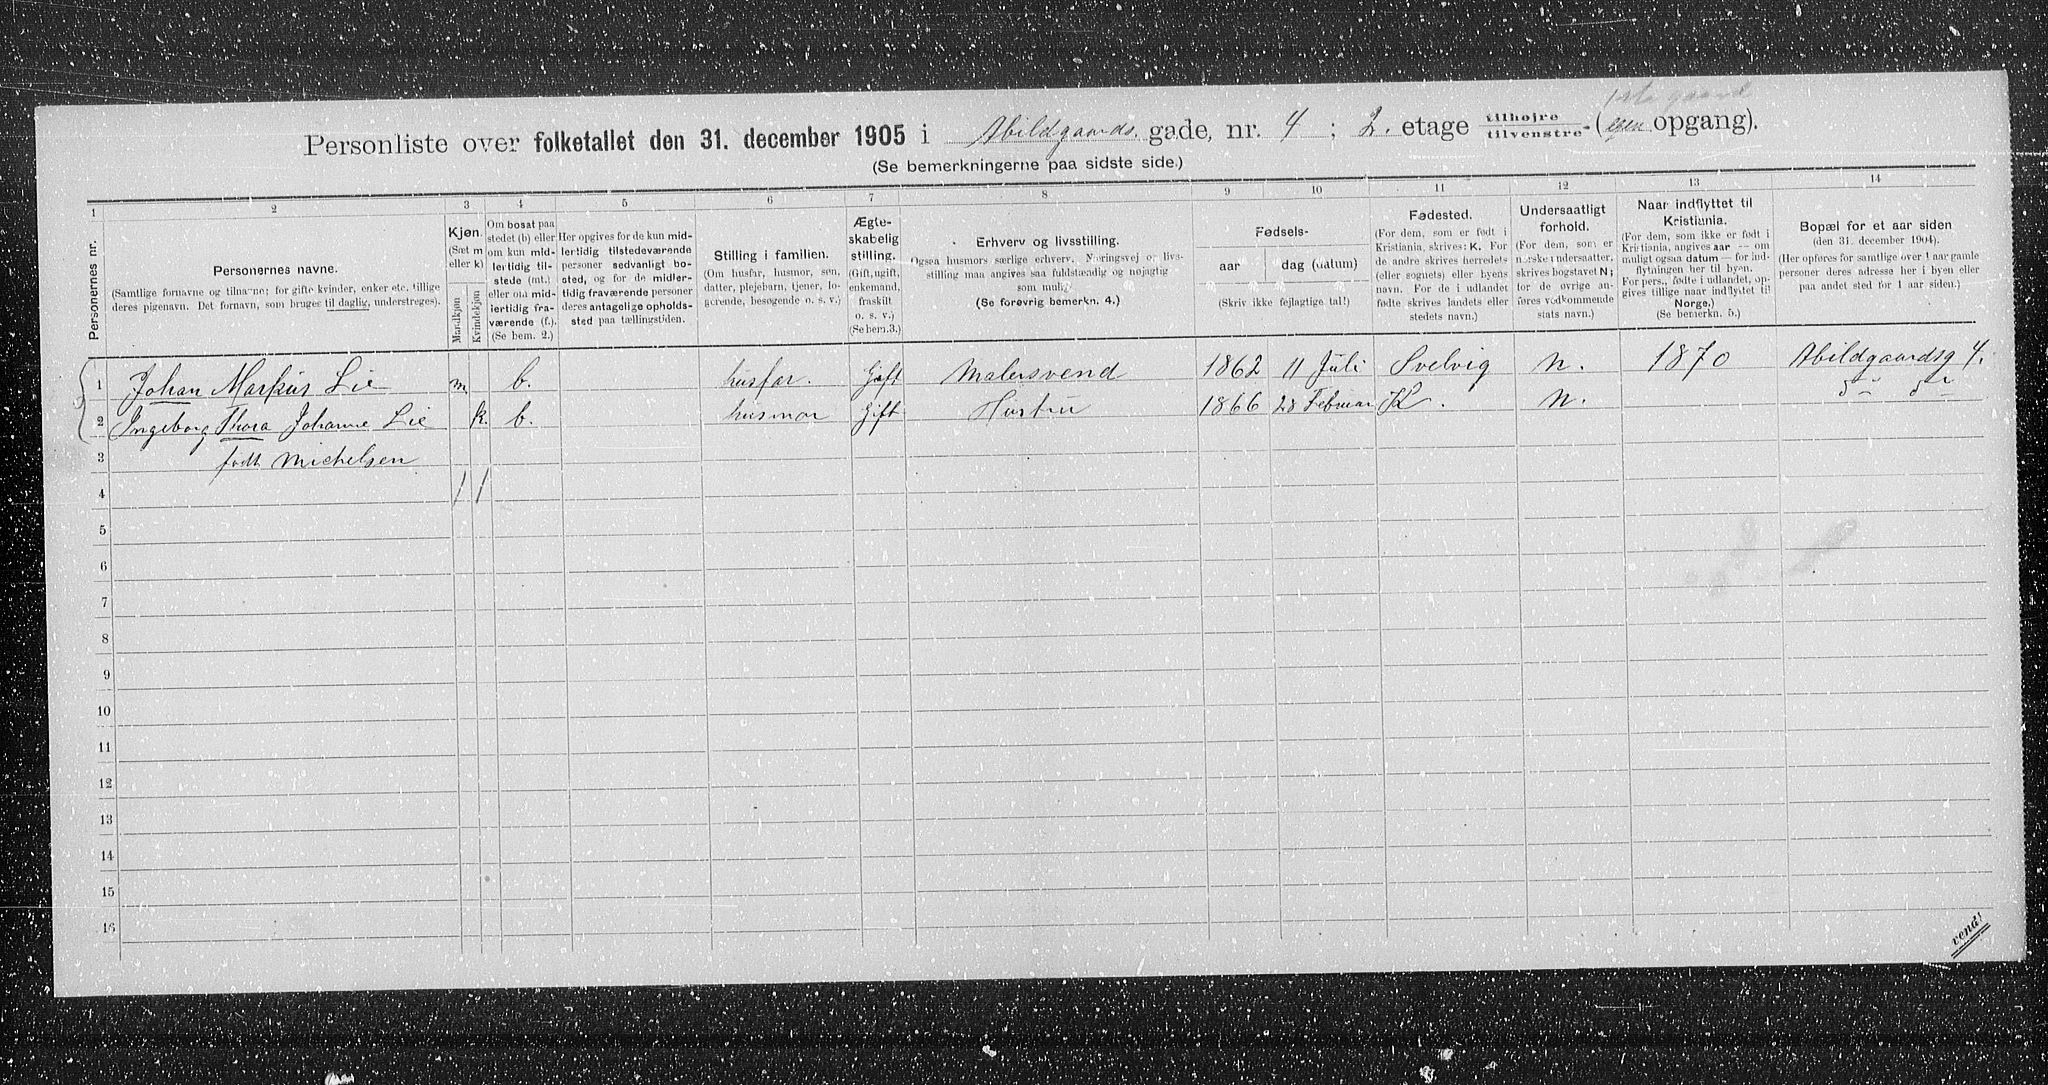 Personliste over folketallet den 31. december 1905 i Abildgaards. gade, nr. 4 ; 2. etage tilhøjre tilvenstre - (egen opgang).
(Se bemerkningerne paa sidste side.)
1 2 3 4 5 6 7 8 9 10 11 12 13 14
Personernes nr.
Personernes navne.
(Samtlige fornavne og tilnavne; for gifte kvinder, enker etc. tillige
deres pigenavn. Det fornavn, som bruger til daglig, understreges).
Kjøn.
(Sæt m
eller k)
Mandkjøn
Kvindekjøn
Om bosat paa
stedet (b) eller
om kun mid-
lertidig til-
stede (mt.)
eller om mid-
lertidig fra-
værende (f.).
(Se bem. 2.)
Her opgives for de kun mid-
lertidig tilstedeværende
personer sedvanligt bo-
sted, og for de midler-
tidig fraværende personer
deres antagelige opholds-
sted paa tællingstiden.
Stilling i familien.
(Om husfar, husmor, søn,
datter, plejebarn, tjener, lo-
gerende, besøgende o. s. v.)
Ægte-
skabelig
stilling.
(Gift, ugift,
enkemand,
fraskilt
o. s. v.)
(Se bem.3.)
Erhverv og livsstilling.
Ogsaa husmors særlige erhverv. Næringsvej og livs-
stilling maa angives saa fuldstændig og nøjagtig
som mulig.
(Se forøvrig bemerkn. 4.)
Fødsels-
aar dag (datum)
(Skriv ikke fejlagtige tal!)
Fødested.
(For dem, som er født i
Kristiania, skrives: K. For
de andre skrives herredets
(eller sognets) eller byens
navn. For de i udlandet
fødte skrives landets eller
stedets navn.)
Undersaatligt
forhold.
(For dem, som er
norske undersaatter,
skrives bogstavet N;
for de øvrige an-
føres vedkommende
stats navn.)
Naar indflyttet til
Kristiania.
(For dem, som ikke er født i
Kristiania, angives aar — om
muligt ogsaa datum — for ind-
flytningen her til byen.
For pers., fødte i udlandet, op-
gives tillige naar indflyttet til
Norge.)
(Se bemerkn. 5.)
Bopæl for et aar siden
(den 31. december 1904).
(Her opføres for samtlige over 1 aar gamle
personer deres adresse her i byen eller
paa andet sted for 1 aar siden.)
1 Johan Markus Lie m b. husfar. Gift Malersvend 1862 11 Juli Svelvig N. 1870 Abildgaardsg 4.
2 Ingeborg Thora Johanne Lie k. b. husmor Gift Hustru 1866 28 Februar K. N. do do
3 født Michelsen
4 1 1
5
6
7
8
9
10
11
12
13
14
15
16
vend!